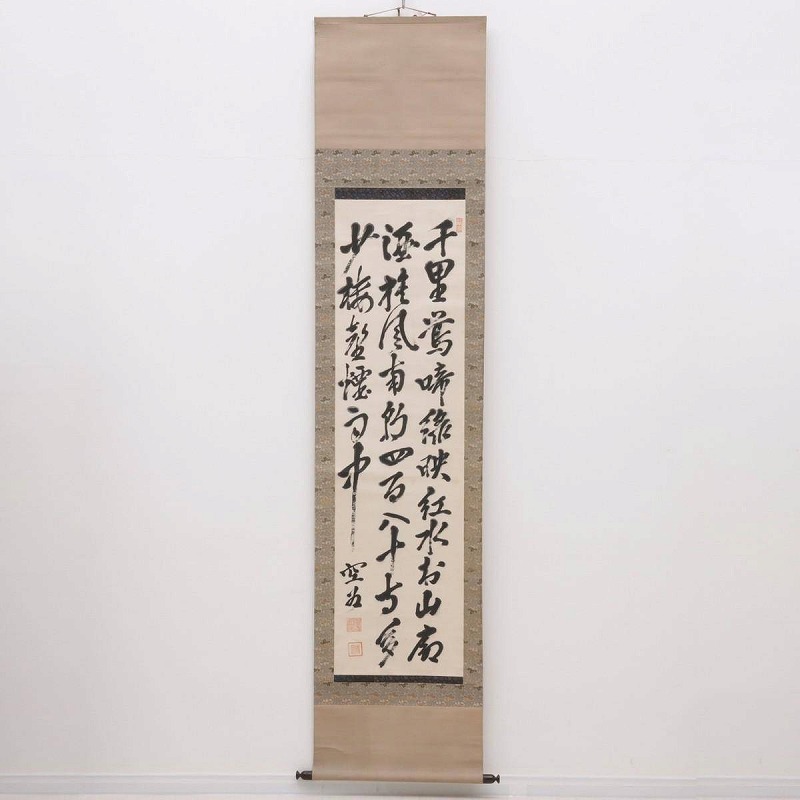 千里鶯啼緑映紅水村山郭
酒旗風南朝四百八十寺多
少樓臺煙雨中